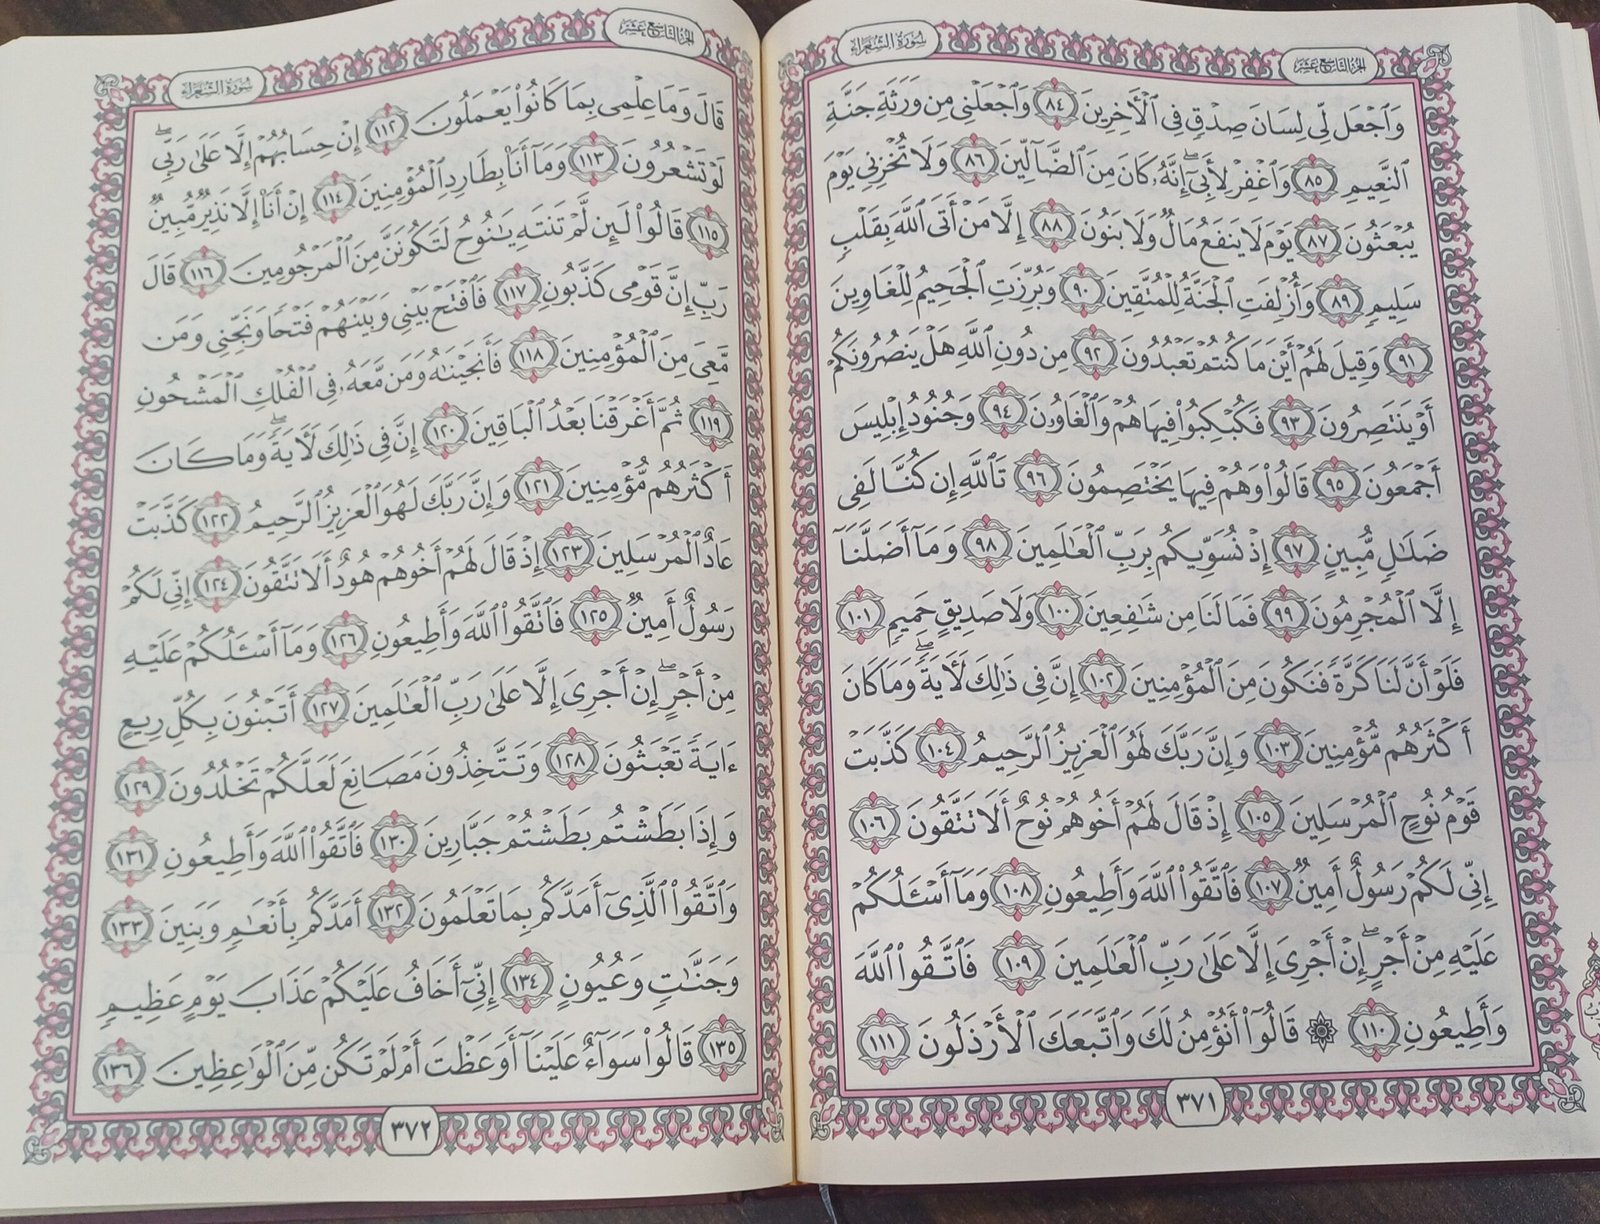 الجزء التاسع عشر
سورة الشعراء
وَٱجۡعَل لِّي لِسَانَ صِدۡقٖ فِي ٱلۡأٓخِرِينَ ٨٤ وَٱجۡعَلۡنِي مِن وَرَثَةِ جَنَّةِ
ٱلنَّعِيمِ ٨٥ وَٱغۡفِرۡ لِأَبِيٓ إِنَّهُۥ كَانَ مِنَ ٱلضَّآلِّينَ ٨٦ وَلَا تُخۡزِنِي يَوۡمَ
يُبۡعَثُونَ ٨٧ يَوۡمَ لَا يَنفَعُ مَالٞ وَلَا بَنُونَ ٨٨ إِلَّا مَنۡ أَتَى ٱللَّهَ بِقَلۡبٖ
سَلِيمٖ ٨٩ وَأُزۡلِفَتِ ٱلۡجَنَّةُ لِلۡمُتَّقِينَ ٩٠ وَبُرِّزَتِ ٱلۡجَحِيمُ لِلۡغَاوِينَ
٩١ وَقِيلَ لَهُمۡ أَيۡنَ مَا كُنتُمۡ تَعۡبُدُونَ ٩٢ مِن دُونِ ٱللَّهِ هَلۡ يَنصُرُونَكُمۡ
أَوۡ يَنتَصِرُونَ ٩٣ فَكُبۡكِبُواْ فِيهَا هُمۡ وَٱلۡغَاوُۥنَ ٩٤ وَجُنُودُ إِبۡلِيسَ
أَجۡمَعُونَ ٩٥ قَالُواْ وَهُمۡ فِيهَا يَخۡتَصِمُونَ ٩٦ تَٱللَّهِ إِن كُنَّا لَفِي
ضَلَٰلٖ مُّبِينٍ ٩٧ إِذۡ نُسَوِّيكُم بِرَبِّ ٱلۡعَٰلَمِينَ ٩٨ وَمَآ أَضَلَّنَآ
إِلَّا ٱلۡمُجۡرِمُونَ ٩٩ فَمَا لَنَا مِن شَٰفِعِينَ ١٠٠ وَلَا صَدِيقٍ حَمِيمٖ ١٠١
فَلَوۡ أَنَّ لَنَا كَرَّةٗ فَنَكُونَ مِنَ ٱلۡمُؤۡمِنِينَ ١٠٢ إِنَّ فِي ذَٰلِكَ لَأٓيَةٗۖ وَمَا كَانَ
أَكۡثَرُهُم مُّؤۡمِنِينَ ١٠٣ وَإِنَّ رَبَّكَ لَهُوَ ٱلۡعَزِيزُ ٱلرَّحِيمُ ١٠٤ كَذَّبَتۡ
قَوۡمُ نُوحٍ ٱلۡمُرۡسَلِينَ ١٠٥ إِذۡ قَالَ لَهُمۡ أَخُوهُمۡ نُوحٌ أَلَا تَتَّقُونَ ١٠٦
إِنِّي لَكُمۡ رَسُولٌ أَمِينٞ ١٠٧ فَٱتَّقُواْ ٱللَّهَ وَأَطِيعُونِ ١٠٨ وَمَآ أَسۡـَٔلُكُمۡ
عَلَيۡهِ مِنۡ أَجۡرٍۖ إِنۡ أَجۡرِيَ إِلَّا عَلَىٰ رَبِّ ٱلۡعَٰلَمِينَ ١٠٩ فَٱتَّقُواْ ٱللَّهَ
وَأَطِيعُونِ ١١٠ ۞ قَالُوٓاْ أَنُؤۡمِنُ لَكَ وَٱتَّبَعَكَ ٱلۡأَرۡذَلُونَ ١١١
٣٧١
الجزء التاسع عشر
سورة الشعراء
قَالَ وَمَا عِلۡمِي بِمَا كَانُواْ يَعۡمَلُونَ ١١٢ إِنۡ حِسَابُهُمۡ إِلَّا عَلَىٰ رَبِّيۖ
لَوۡ تَشۡعُرُونَ ١١٣ وَمَآ أَنَا۠ بِطَارِدِ ٱلۡمُؤۡمِنِينَ ١١٤ إِنۡ أَنَا۠ إِلَّا نَذِيرٞ مُّبِينٞ
١١٥ قَالُواْ لَئِن لَّمۡ تَنتَهِ يَٰنُوحُ لَتَكُونَنَّ مِنَ ٱلۡمَرۡجُومِينَ ١١٦ قَالَ
رَبِّ إِنَّ قَوۡمِي كَذَّبُونِ ١١٧ فَٱفۡتَحۡ بَيۡنِي وَبَيۡنَهُمۡ فَتۡحٗا وَنَجِّنِي وَمَن
مَّعِيَ مِنَ ٱلۡمُؤۡمِنِينَ ١١٨ فَأَنجَيۡنَٰهُ وَمَن مَّعَهُۥ فِي ٱلۡفُلۡكِ ٱلۡمَشۡحُونِ
١١٩ ثُمَّ أَغۡرَقۡنَا بَعۡدُ ٱلۡبَاقِينَ ١٢٠ إِنَّ فِي ذَٰلِكَ لَأٓيَةٗۖ وَمَا كَانَ
أَكۡثَرُهُم مُّؤۡمِنِينَ ١٢١ وَإِنَّ رَبَّكَ لَهُوَ ٱلۡعَزِيزُ ٱلرَّحِيمُ ١٢٢ كَذَّبَتۡ
عَادٌ ٱلۡمُرۡسَلِينَ ١٢٣ إِذۡ قَالَ لَهُمۡ أَخُوهُمۡ هُودٌ أَلَا تَتَّقُونَ ١٢٤ إِنِّي لَكُمۡ
رَسُولٌ أَمِينٞ ١٢٥ فَٱتَّقُواْ ٱللَّهَ وَأَطِيعُونِ ١٢٦ وَمَآ أَسۡـَٔلُكُمۡ عَلَيۡهِ
مِنۡ أَجۡرٍۖ إِنۡ أَجۡرِيَ إِلَّا عَلَىٰ رَبِّ ٱلۡعَٰلَمِينَ ١٢٧ أَتَبۡنُونَ بِكُلِّ رِيعٍ
ءَايَةٗ تَعۡبَثُونَ ١٢٨ وَتَتَّخِذُونَ مَصَانِعَ لَعَلَّكُمۡ تَخۡلُدُونَ ١٢٩
وَإِذَا بَطَشۡتُم بَطَشۡتُمۡ جَبَّارِينَ ١٣٠ فَٱتَّقُواْ ٱللَّهَ وَأَطِيعُونِ ١٣١
وَٱتَّقُواْ ٱلَّذِيٓ أَمَدَّكُم بِمَا تَعۡلَمُونَ ١٣٢ أَمَدَّكُم بِأَنۡعَٰمٖ وَبَنِينَ ١٣٣
وَجَنَّٰتٖ وَعُيُونٍ ١٣٤ إِنِّيٓ أَخَافُ عَلَيۡكُمۡ عَذَابَ يَوۡمٍ عَظِيمٖ
١٣٥ قَالُواْ سَوَآءٌ عَلَيۡنَآ أَوَعَظۡتَ أَمۡ لَمۡ تَكُن مِّنَ ٱلۡوَٰعِظِينَ ١٣٦
٣٧٢